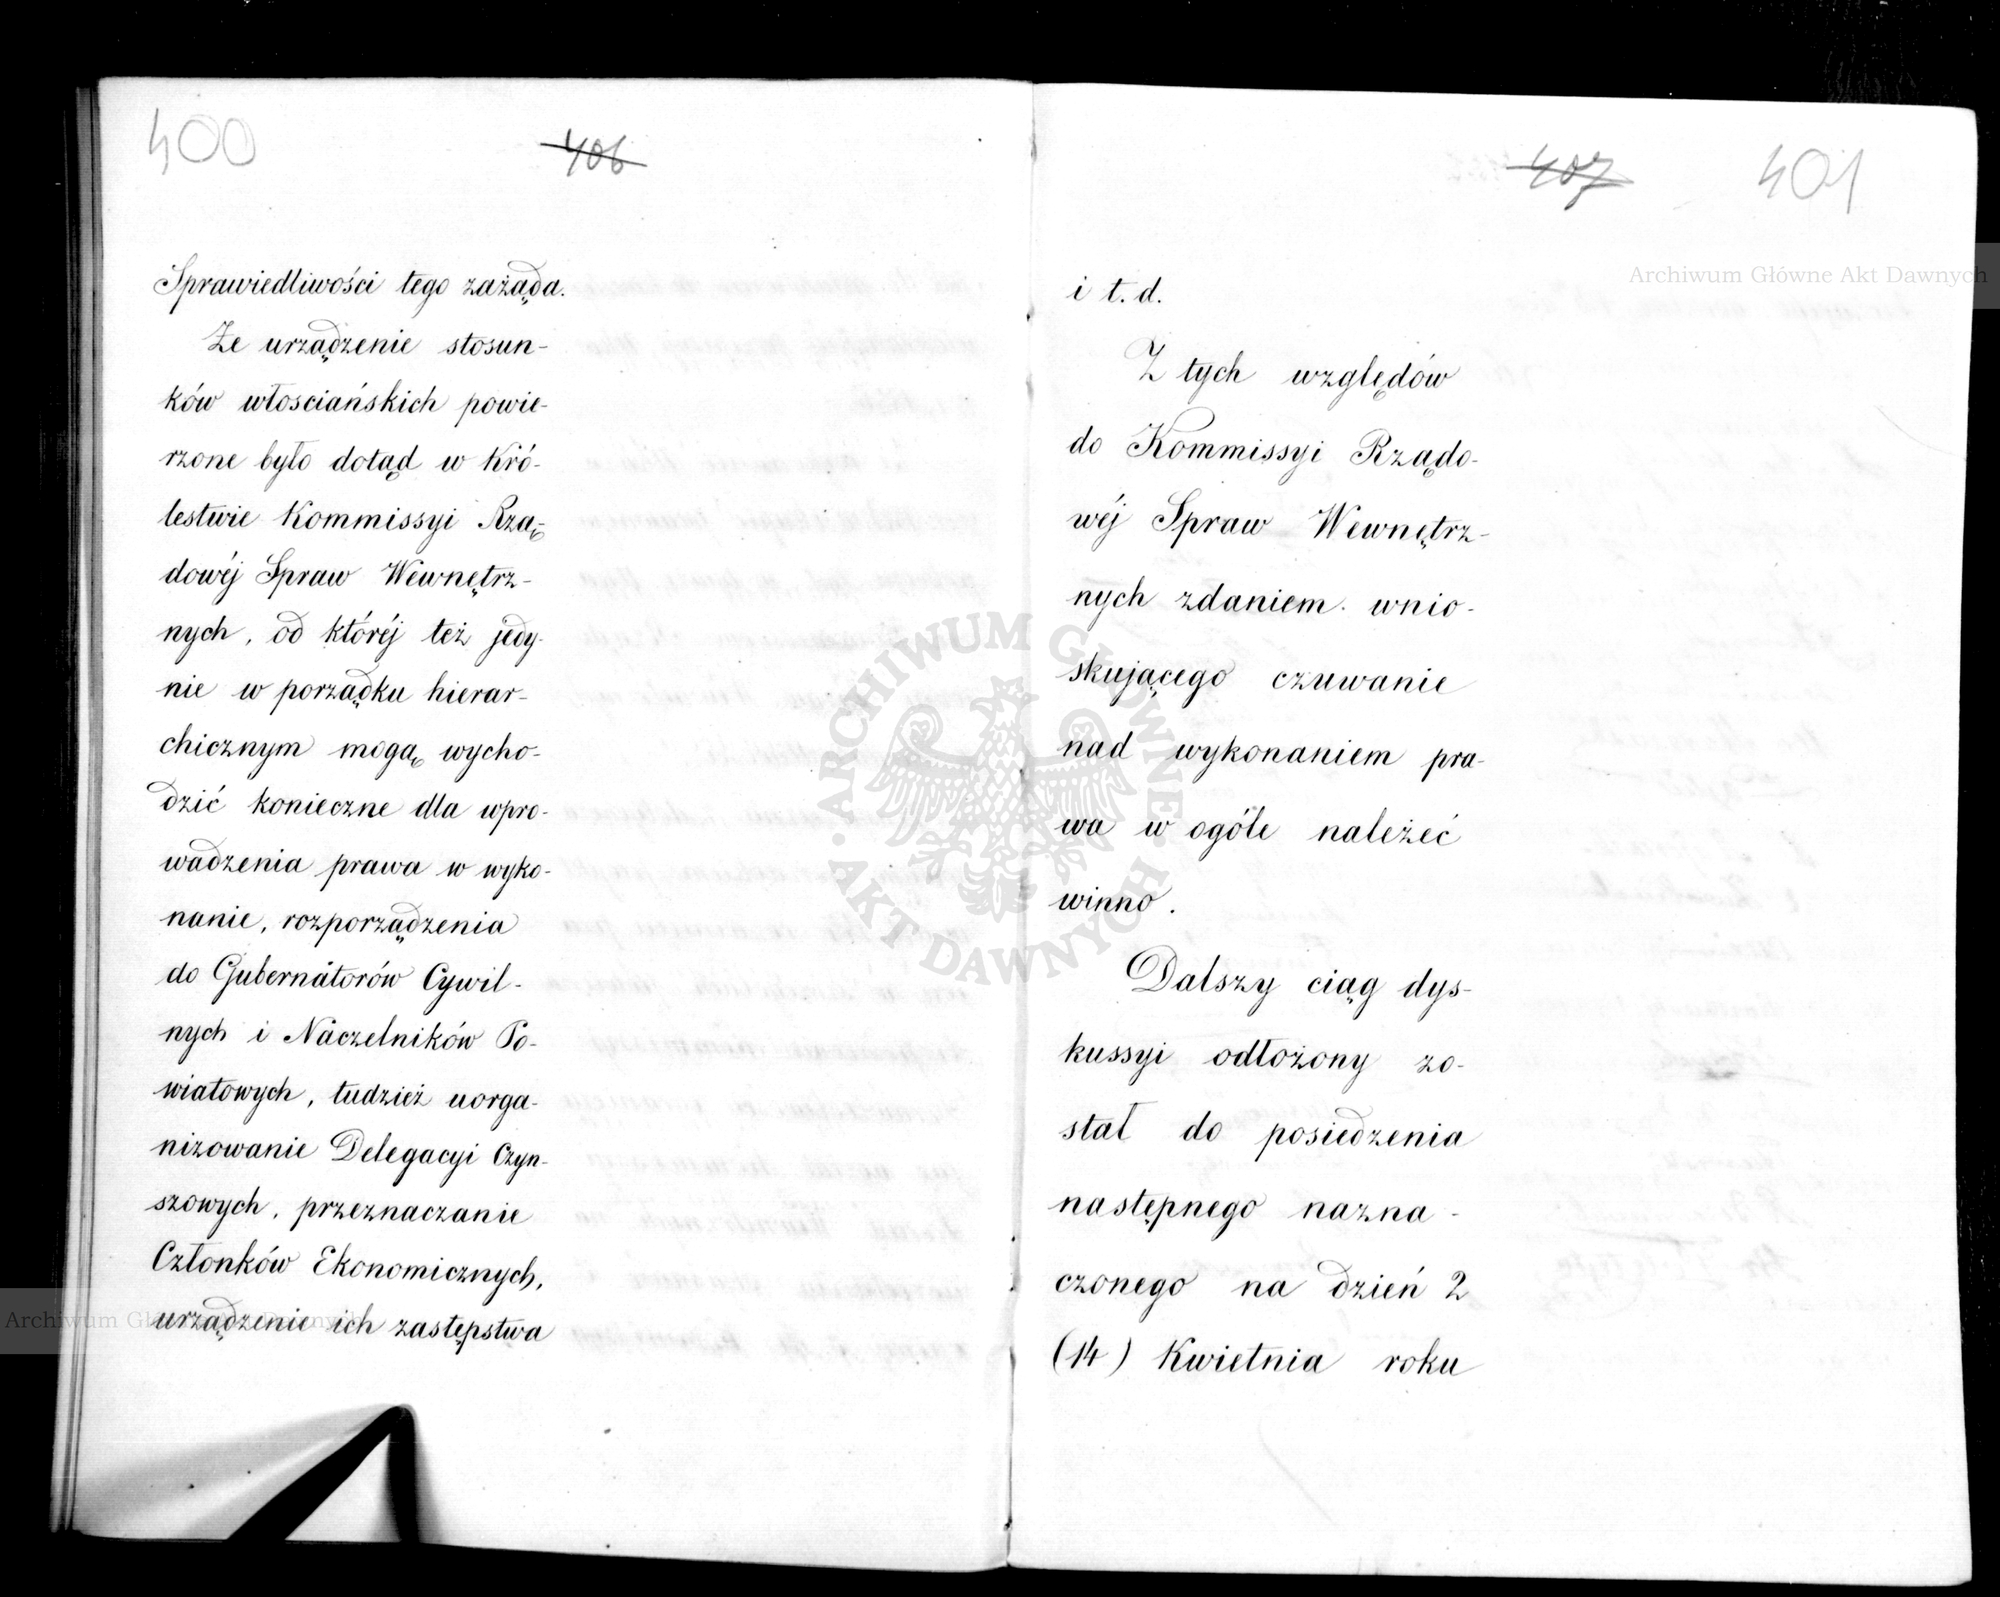 400
406
Sprawiedliwości tego zażąda.
Że urządzenie stosun-
ków włosciańskich powie-
rzone było dotąd w Kró-
lestwie Kommissyi Rzą-
dowéj Spraw Wewnętrz-
nych, od któréj też jedy-
nie w porządku hierar-
chicznym mogą wycho-
dzić konieczne dla wpro-
wadzenia prawa w wyko-
nanie, rozporządzenia
do Gubernatorów Cywil-
nych i Naczelników Po-
wiatowych, tudzież uorga-
nizowanie Delegacyi Czyn-
szowych, przeznaczanie
Członków Ekonomicznych,
urządzenie ich zastępstwa
407
401
i t. d.
Z tych względów
do Kommissyi Rządo-
wéj Spraw Wewnętrz-
nych zdaniem wnio-
skującego czuwanie
nad wykonaniem pra-
wa w ogóle należeć
winno.
Dalszy ciąg dys-
kussyi odłożony zo-
stał do posiedzenia
następnego nazna-
czonego na dzień 2
(14) Kwietnia roku
Archiwum Główne Akt Dawnych
Archiwum Główne Akt Dawnych
ARCHIWUM GŁÓWNE AKT DAWNYCH